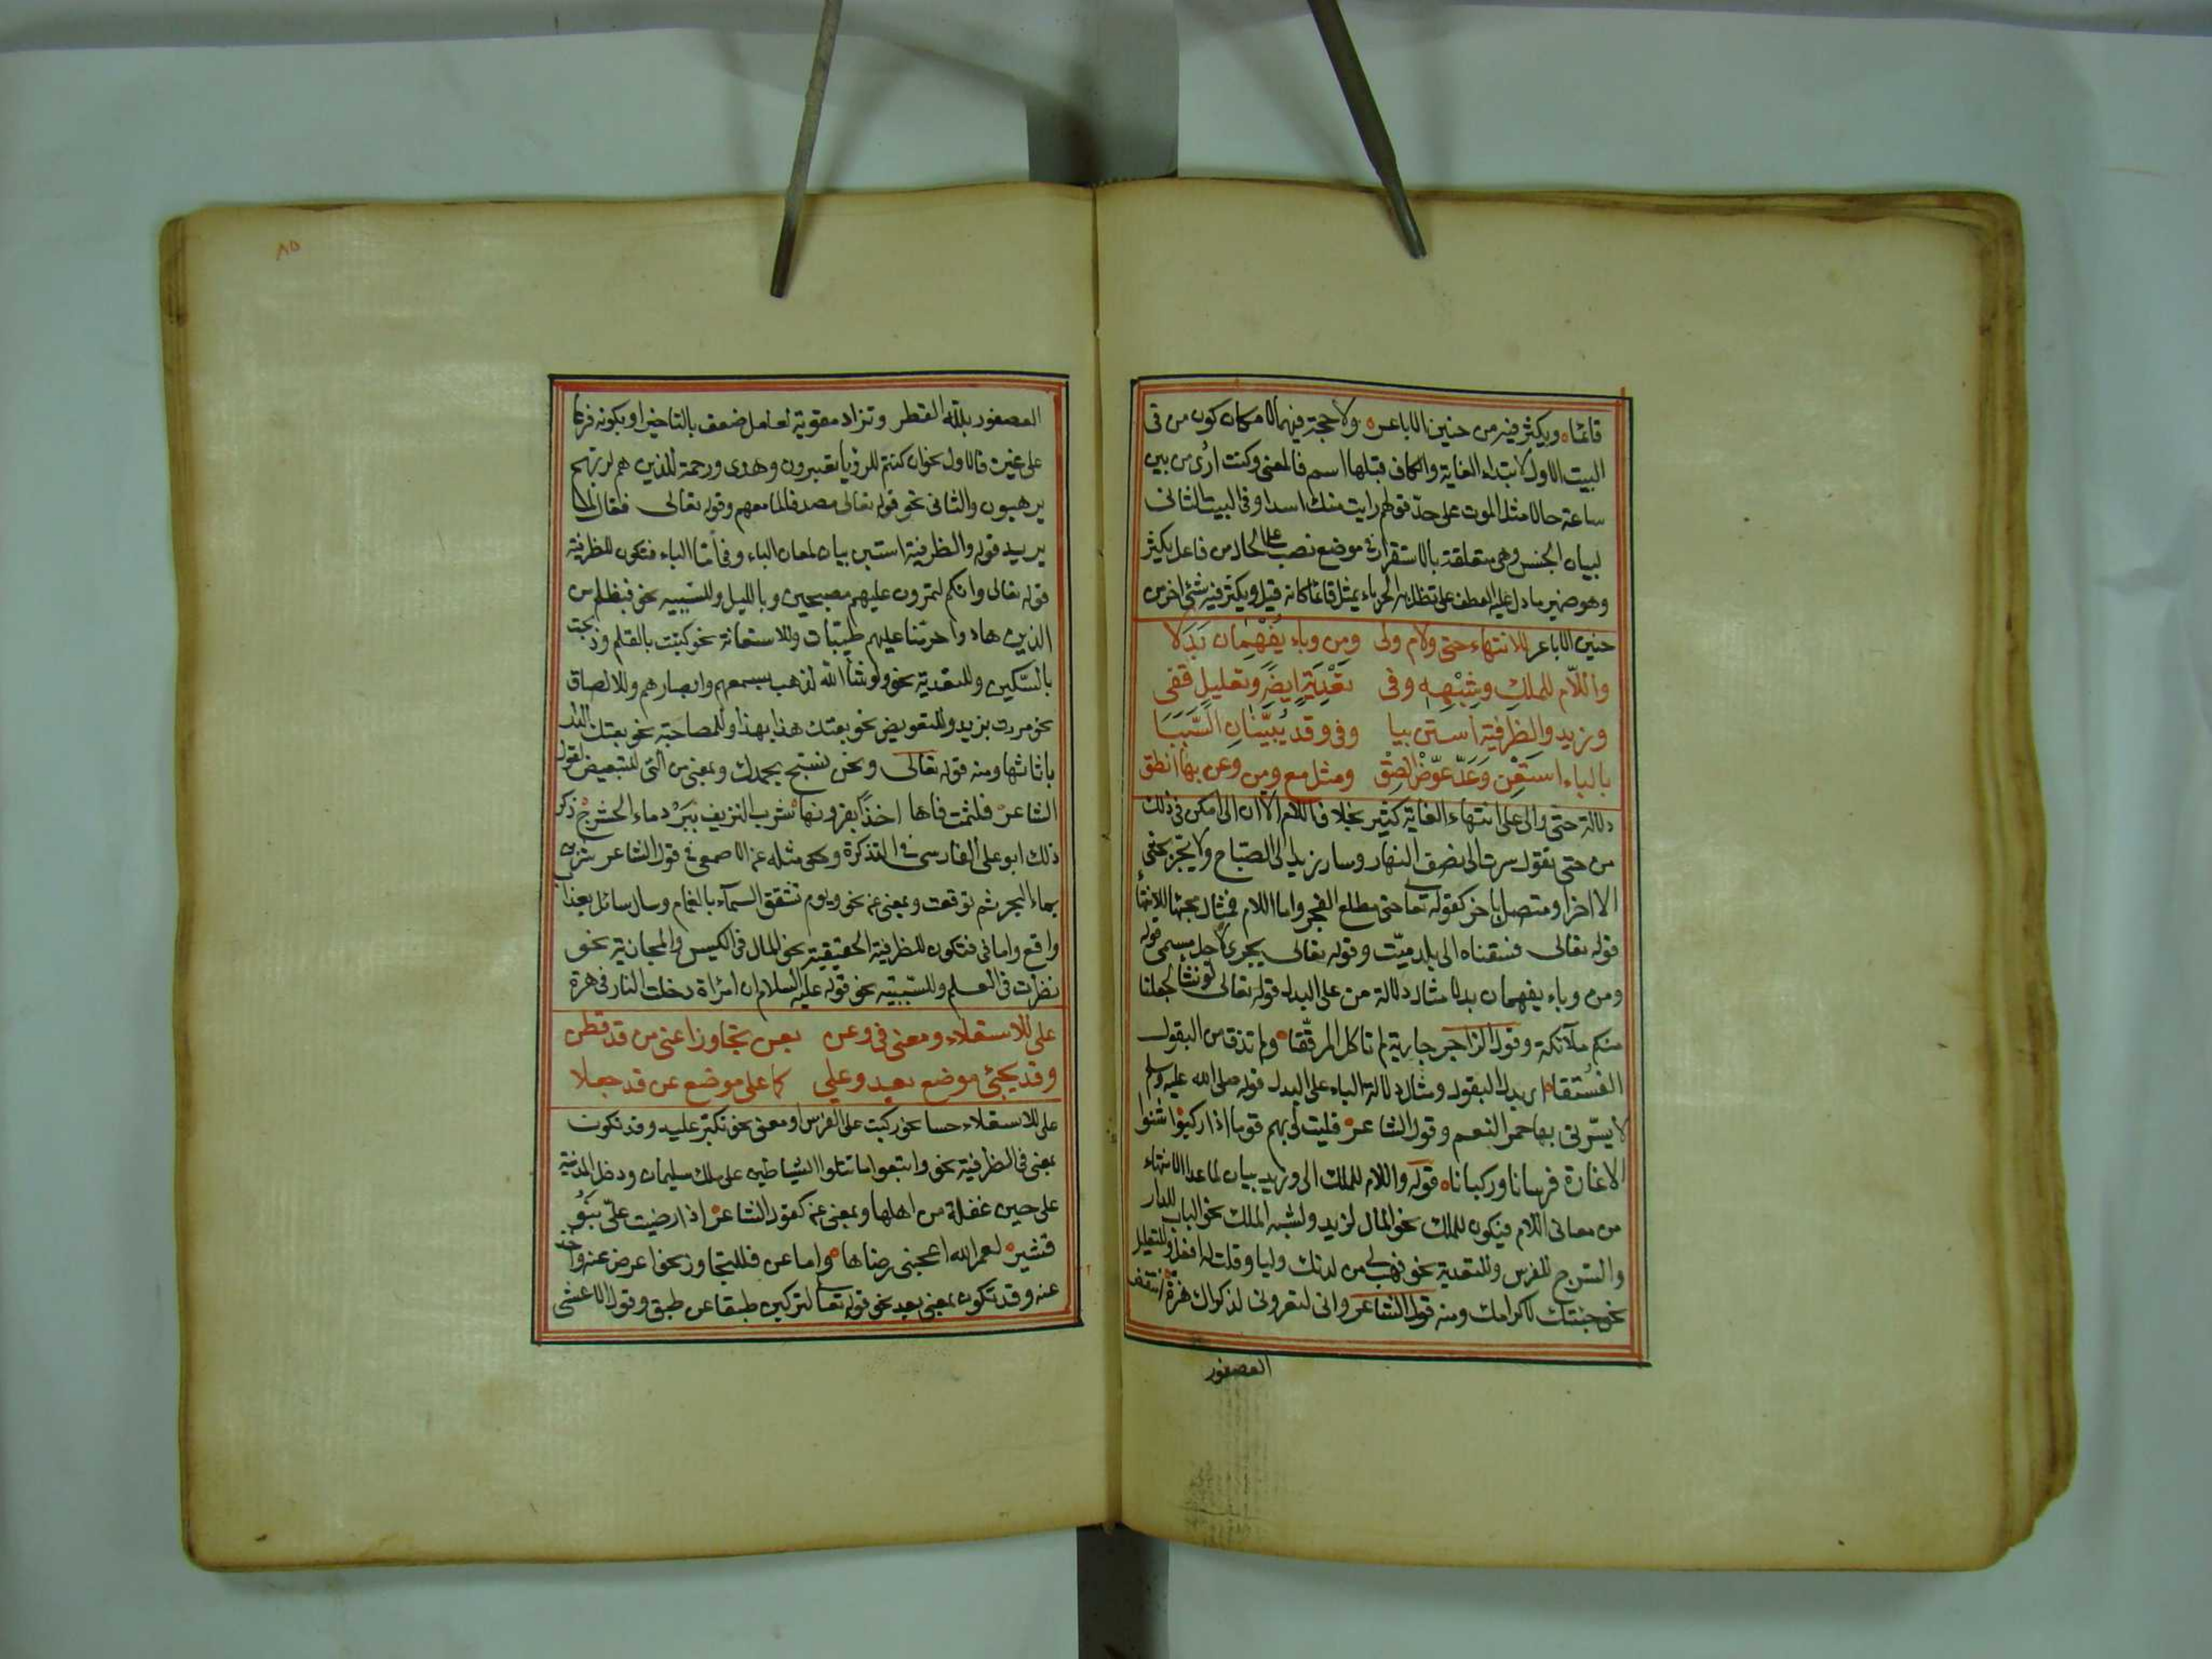 قائما ويكثر فيه من حنين الاباعر ولا حجة فيهما لامكان كون من فى
البيت الاول لابتداء الغاية والكاف قبلها اسم فالمعنى وكنت ارى من بين
ساعة حالا مثل الموت على حد قولهم رايت منك اسدا وفى البيت الثانى
لبيان الجنس وهى متعلقة بالاستقرار فى موضع نصب على الحال من فاعل يكثر
وهو ضمير ما دل عليه العطف على تظل به الحرباء يمثل قائما كانه قيل ويكثر فيه شئ اخر من
حنين الاباعر للانتهاء حتى ولام والى ومن وباء يفهمان بدلا
واللام للملك وشبهه وفى تعدية ايضا وتعليل قفى
وزيد والظرفية استبن ببا وفى وقد يبينان السببا
بالباء استعن وعد عوض الصق ومثل مع ومن وعن بها انطق
دلالة حتى والى على انتهاء الغاية كثير بخلاف اللام الا ان الى امكن فى ذلك
من حتى تقول سرت الى نصف النهار وسار زيد الى الصباح ولا تجر بحتى
الا اخرا او متصل باخر كقوله تعا حتى مطلع الفجر واما اللام فمثال مجيئها للانتها
قوله تعالى فسقناه الى بلد ميت وقوله تعالى يجرى لاجل مسمى قوله
ومن وباء يفهمان بدلا مثال دلالة من على البدل قوله تعالى لو نشا لجعلنا
منكم ملائكة وقول الراجز جارية لم تاكل المرققا ولم تذق من البقول
الفستقا اى بدل البقول ومثال دلالة الباء على البدل قوله صلى الله عليه وسلم
لا يسرنى بها حمر النعم وقول الشاعر فليت لى بهم قوما اذا ركبوا شنوا
الاغارة فرسانا وركبانا قوله واللام للملك الى وزيد بيان لما عدا الانتهاء
من معانى اللام فيكون للملك نحو المال لزيد ولشبه الملك نحو الباب للدار
والسرج للفرس وللتعدية نحو فهب لى من لدنك وليا وقلت له افعل وللتعليل
نحو جئتك لاكرامك ومنه قول الشاعر وانى لتعرونى لذكراك هزة كما انتفض
العصفور
العصفور بلله القطر وتزاد مقوية لعامل ضعف بالتاخير او بكونه فرعا
على غيره فالاول نحو ان كنتم للرؤيا تعبرون وهدى ورحمة للذين هم لربهم
يرهبون والثانى نحو قوله تعالى مصدقا لما معهم وقوله تعالى فعال لما
يريد قوله والظرفية استبن بيان لمعان الباء وفى اما الباء فتكون للظرفية
قوله تعالى وانكم لتمرون عليهم مصبحين وبالليل وللسببية نحو فبظلم من
الذين هادوا حرمنا عليهم طيبات وللاستعانة نحو كتبت بالقلم وذبحت
بالسكين وللتعدية نحو ولو شاء الله لذهب بسمعهم وابصارهم وللالصاق
نحو مررت بزيد وللتعويض نحو بعتك هذا بهذا وللمصاحبة نحو بعتك الدار
باثاثها ومنه قوله تعالى ونحن نسبح بحمدك وبمعنى من التى للتبعيض كقول
الشاعر فلثمت فاها اخذا بقرونها شرب النزيف ببرد ماء الحشرج ذكر
ذلك ابو على الفارسى فى التذكرة وحكى مثله عن الاصمعى فى قول الشاعر شربن
بماء البحر ثم ترفعت وبمعنى عن نحو ويوم تشقق السماء بالغمام وسال سائل بعذاب
واقع واما فى فتكون للظرفية الحقيقية نحو المال فى الكيس والمجازية نحو
نظرت فى العلم وللسببية نحو قوله عليه السلام ان امراة دخلت النار فى هرة
على للاستعلاء ومعنى فى وعن بعن تجاوزا عنى من قد فطن
وقد يجئ موضع بعد وعلى كما على موضع عن قد جعلا
على للاستعلاء حسا نحو ركبت على الفرس او معنى نحو تكبر عليه وقد تكون
بمعنى فى الظرفية نحو واتبعوا ما تتلوا الشياطين على ملك سليمان ودخل المدينة
على حين غفلة من اهلها وبمعنى عن كقول الشاعر اذا رضيت على بنو
قشير لعمر الله اعجبنى رضاها واما عن فللتجاوز نحو اعرض عنه واخذ
عنه وقد تكون بمعنى بعد نحو قوله تعا لتركبن طبقا عن طبق وقول الاعشى
٨٥